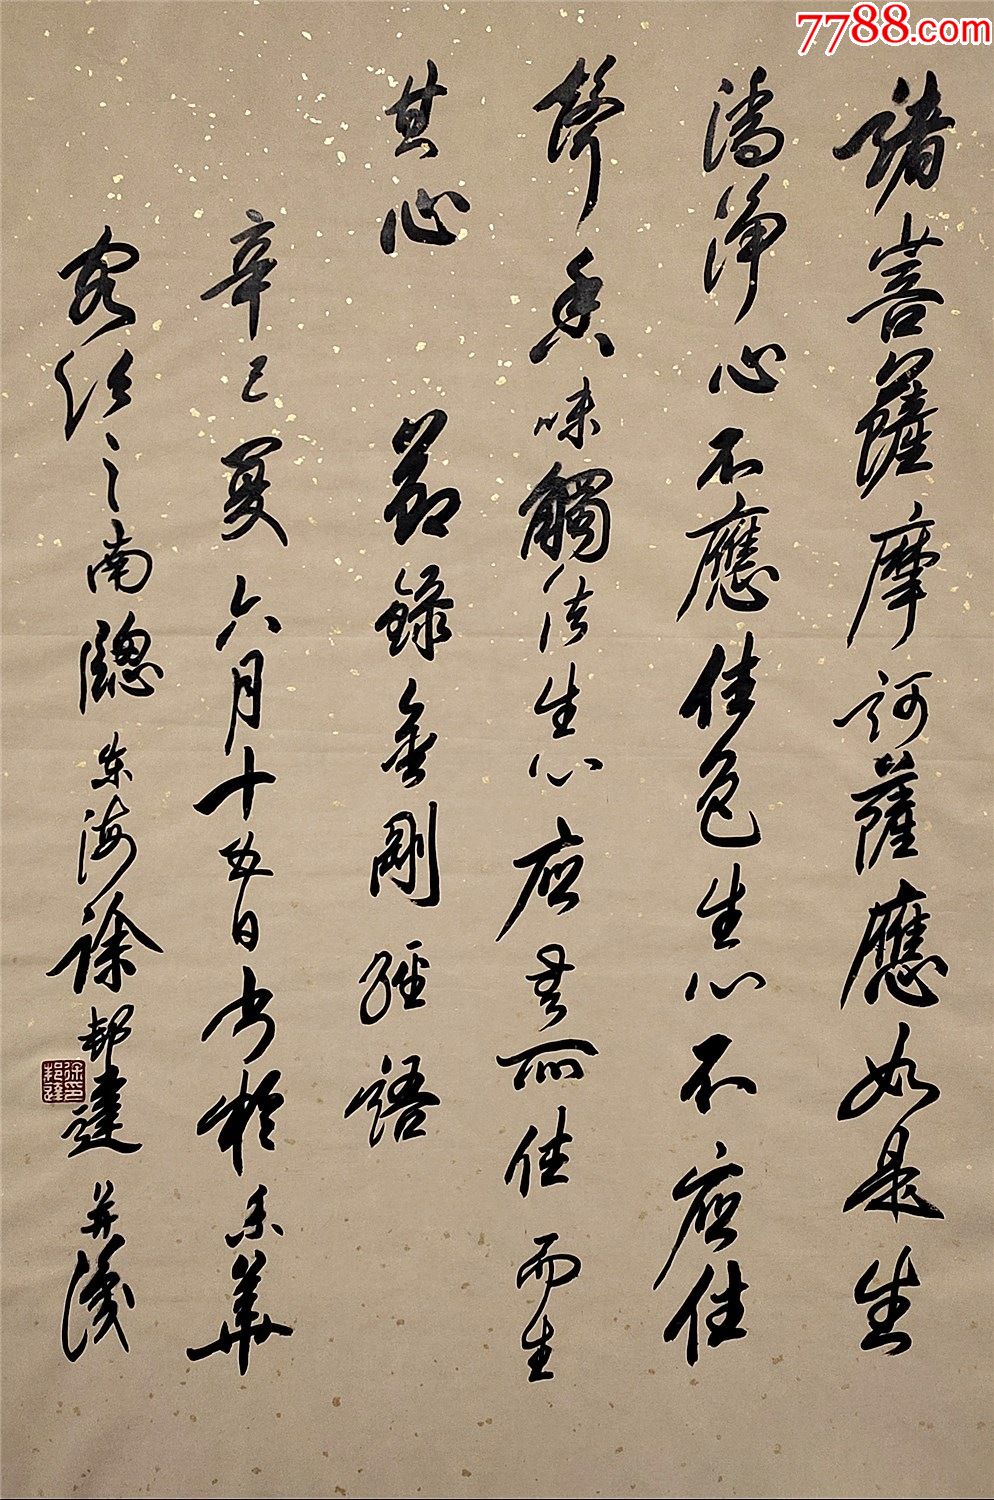 諸菩薩摩訶薩應如是生
清淨心不應住色生心不应住
聲香味觸法生心应無所住而生
其心 節錄金剛經語
辛巳夏六月十五日书於京華
寓之南牕 东海徐邦達并識
徐邦達印
7788.com